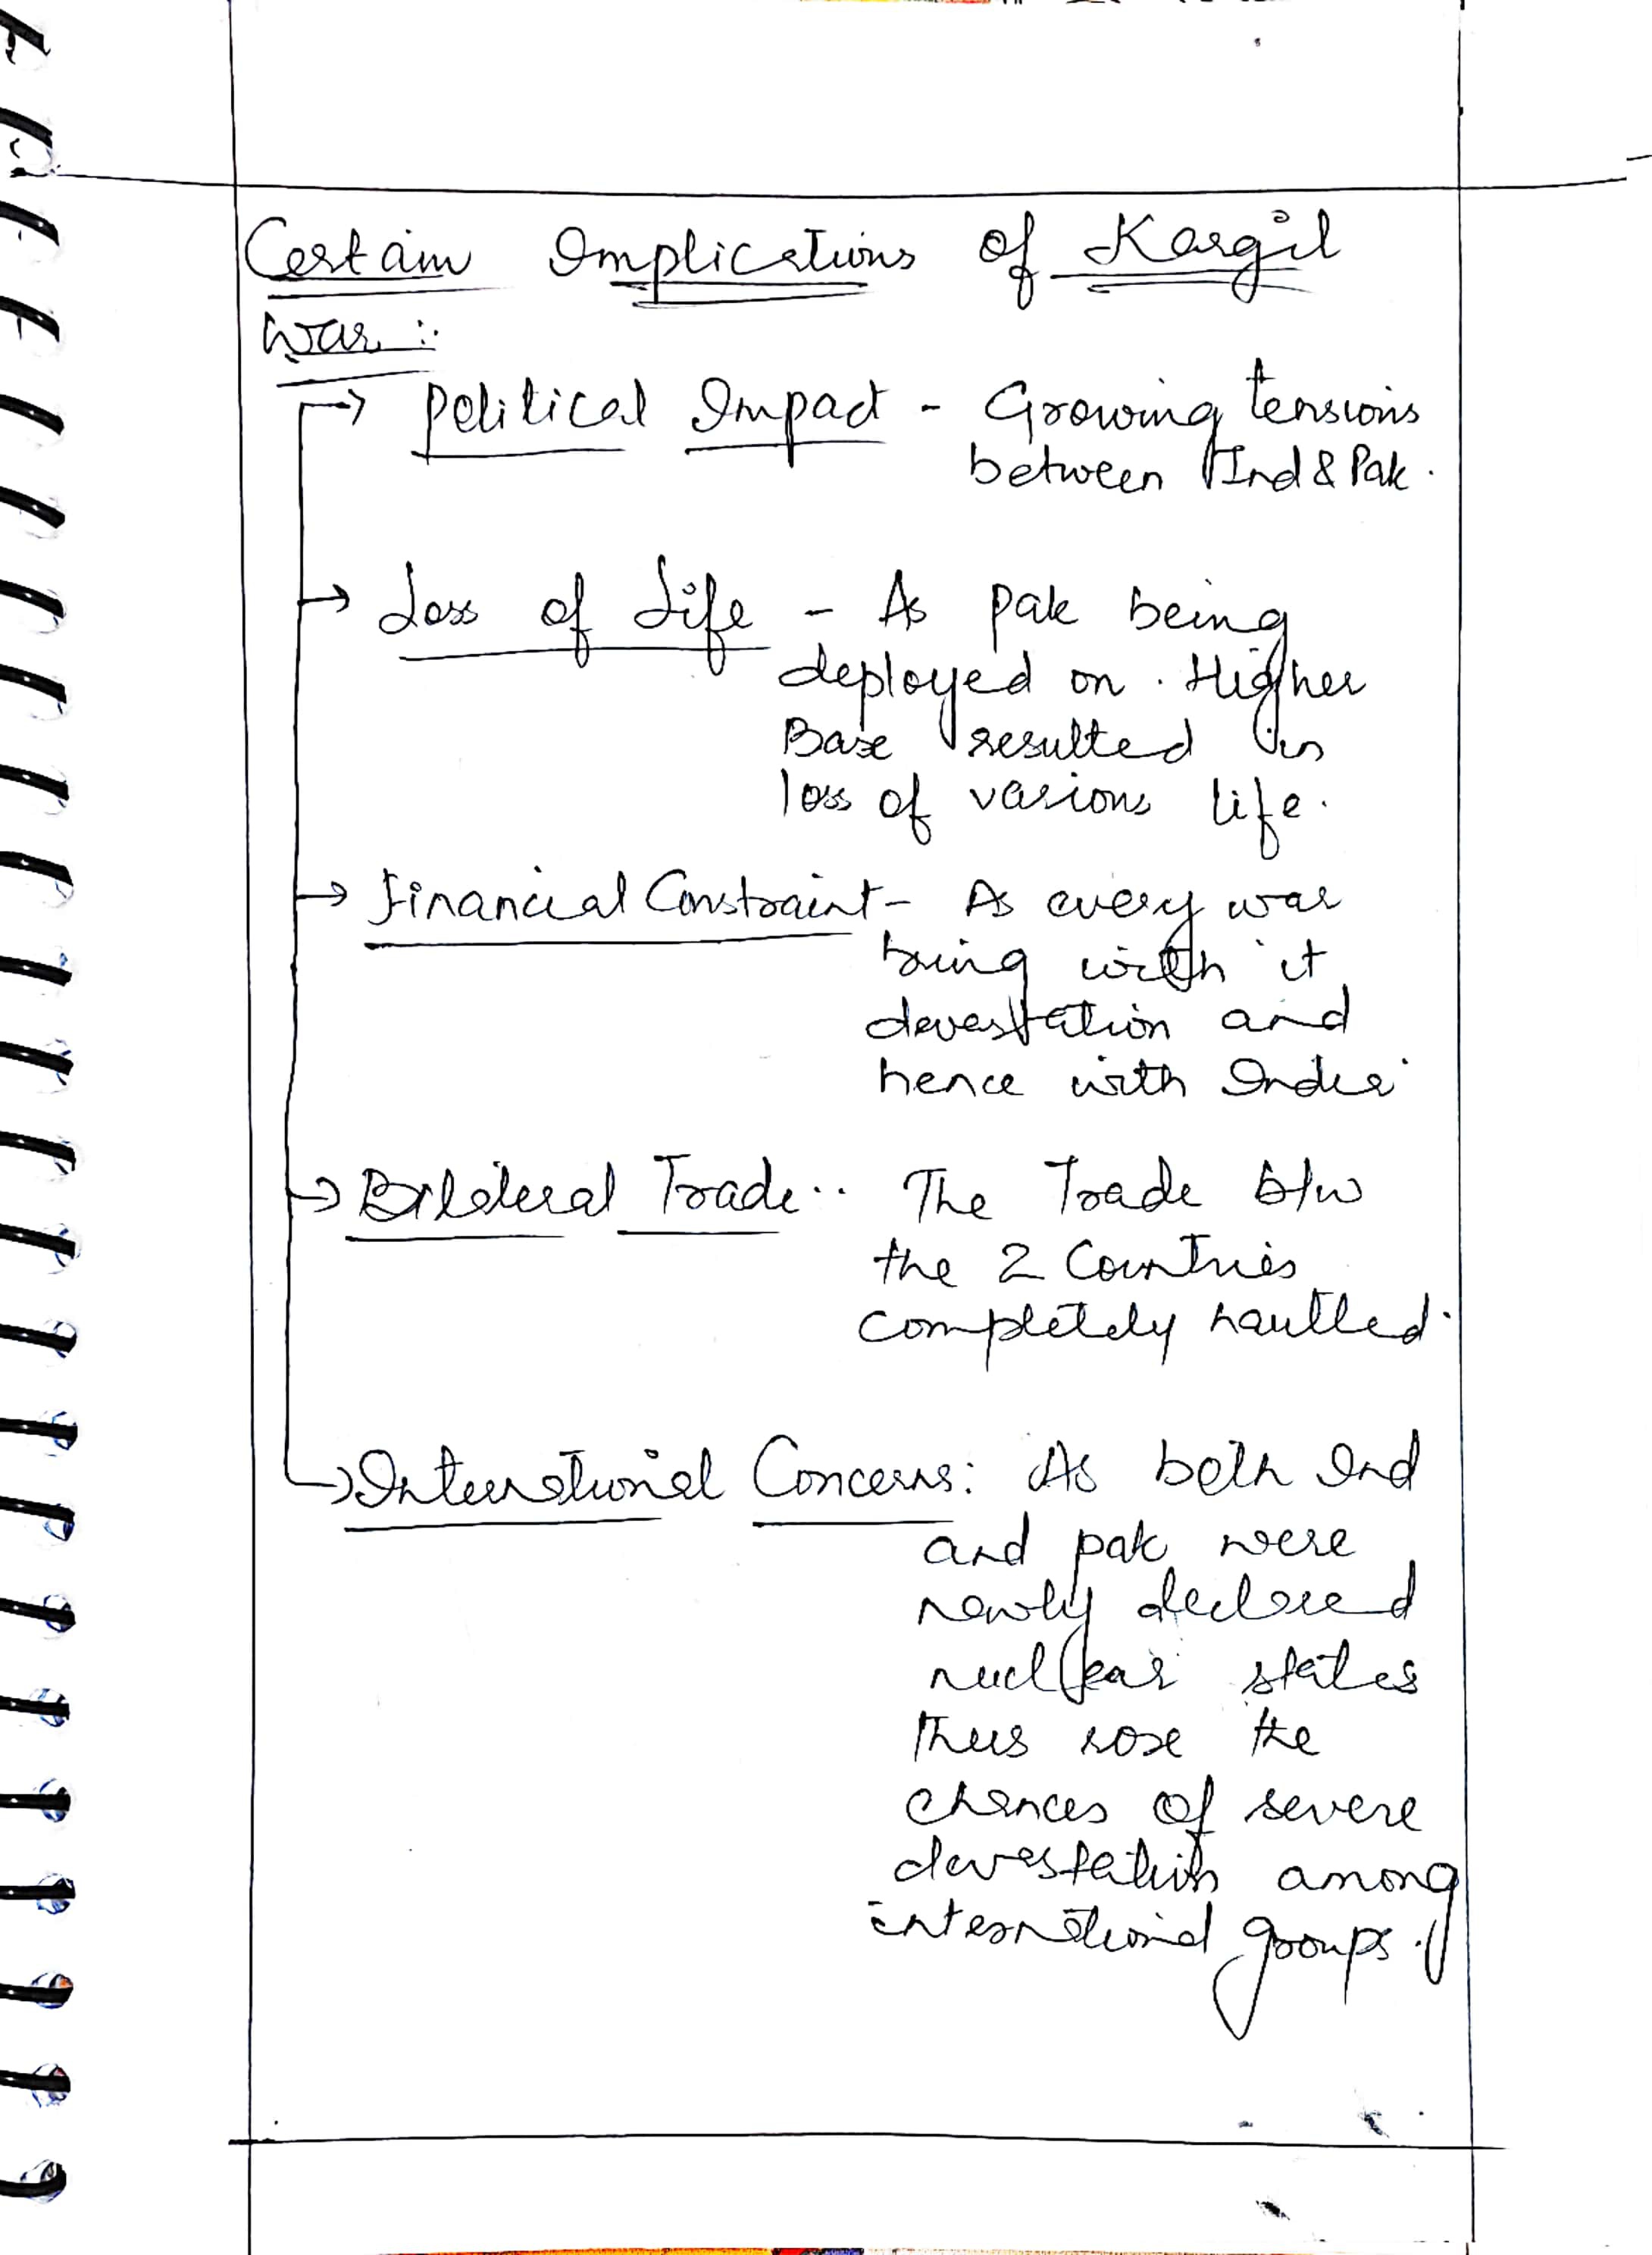 Certain Implications of Kargil
War :
→ Political Impact - Growing tensions
between Ind & Pak.
→ Loss of Life - As Pak being
deployed on Higher
Base resulted in
loss of various life.
→ Financial Constraint - As every war
bring with it
devastation and
hence with India.
→ Bilateral Trade.. The Trade b/w
the 2 Countries
completely haulted.
→ International Concerns: As both Ind
and pak were
newly declared
nuclear states
thus rose the
chances of severe
devastation among
international groups.